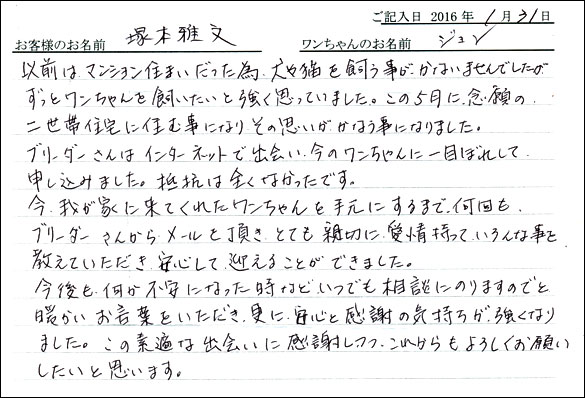 ご記入日 2016年 1月31日
お客様のお名前 塚本雅文 ワンちゃんのお名前 ジュン
以前は、マンション住まいだった為、犬や猫を飼う事が、かないませんでしたが
ずっとワンちゃんを飼いたいと強く思っていました。この5月に、念願の
二世帯住宅に住む事になり その思いが、かなう事になりました。
ブリーダーさんは インターネットで出会い、今のワンちゃんに一目ぼれして
申し込みました。抵抗は全くなかったです。
今、我が家に来てくれたワンちゃんを手元にするまで、何回も、
ブリーダーさんから、メールを頂き、とても親切に、愛情持って、いろんな事を
教えていただき 安心して 迎えることができました。
今後も、何か不安になった時など、いつでも相談にのりますのでと
暖かいお言葉をいただき、更に、安心と感謝の気持ちが強くなり
ました。この素適な出会いに感謝しつつ、これからもよろしくお願い
したいと思います。